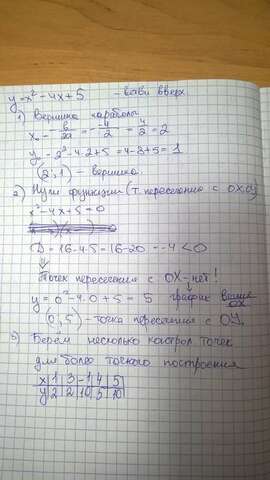 y=x²-4x+5 - ветви вверх
1) Вершина параболы
x₀=-b/2a=-(-4)/2=4/2=2
y₀=2²-4·2+5=4-8+5=1
(2;1) - вершина.
2) Нули функции (т. пересечения с OX, OY)
x²-4x+5=0
D=16-4·5=16-20=-4<0
⇓
Точек пересечения с OX - нет!
y=0²-4·0+5=5 график выше OX
(0;5) - точка пересечения с OY.
3) Берем несколько контрол. точек
для более точного построения
x|1|3|-1|4|5
y|2|2|10|5|10